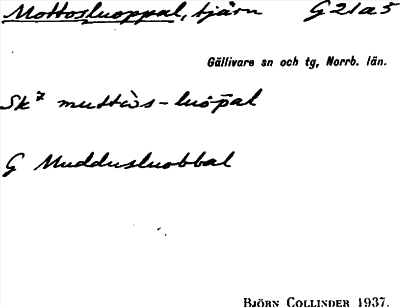 Mottosluoppal, tjärn G21a5
Gällivare sn och tg, Norrb. län.
Sk⁷ muttùs-luop̄al
G Muddusluobbal
BJÖRN COLLINDER 1937.